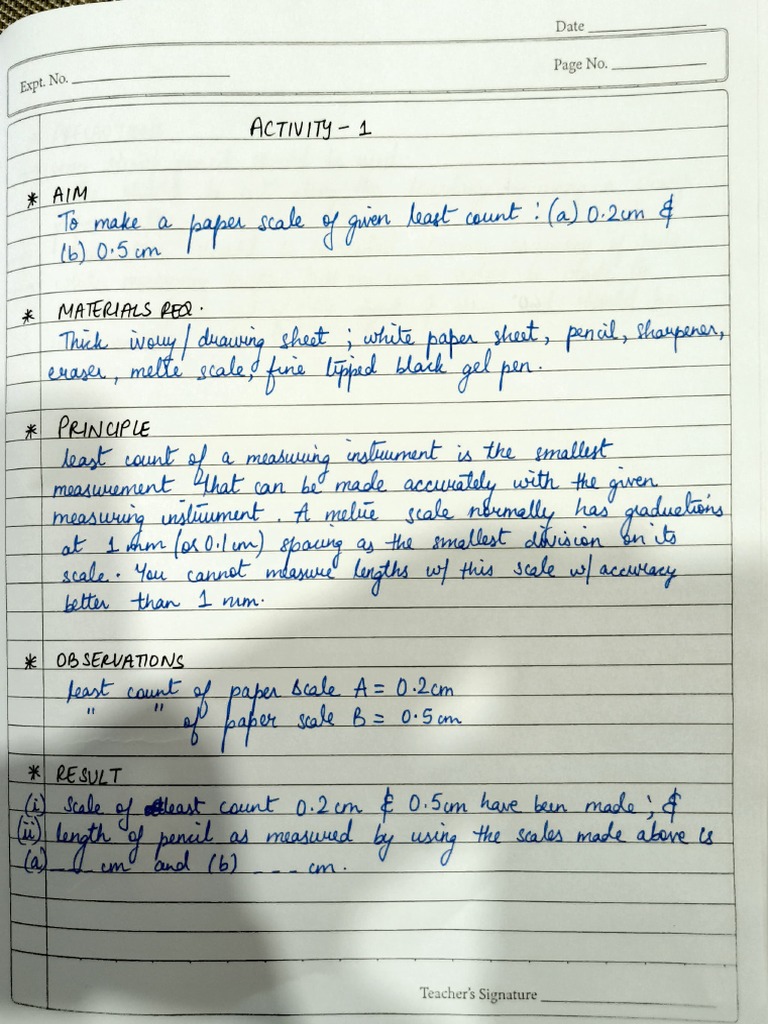 Date
Expt. No.
Page No.
ACTIVITY - 1
* AIM
To make a paper scale of given least count : (a) 0.2cm &
(b) 0.5 cm
* MATERIALS REQ.
Thick ivory / drawing sheet ; white paper sheet, pencil, sharpener,
eraser, metre scale, fine tipped black gel pen.
* PRINCIPLE
least count of a measuring instrument is the smallest
measurement that can be made accurately with the given
measuring instrument. A metre scale normally has graduations
at 1 mm (or 0.1 cm) spacing as the smallest division on its
scale. You cannot measure lengths w/ this scale w/ accuracy
better than 1 mm.
* OBSERVATIONS
least count of paper scale A = 0.2cm
" " of paper scale B = 0.5 cm
* RESULT
(i) scale of least count 0.2 cm & 0.5cm have been made ; &
(ii) length of pencil as measured by using the scales made above is
(a) _ _ _ cm and (b) _ _ _ cm.
Teacher's Signature